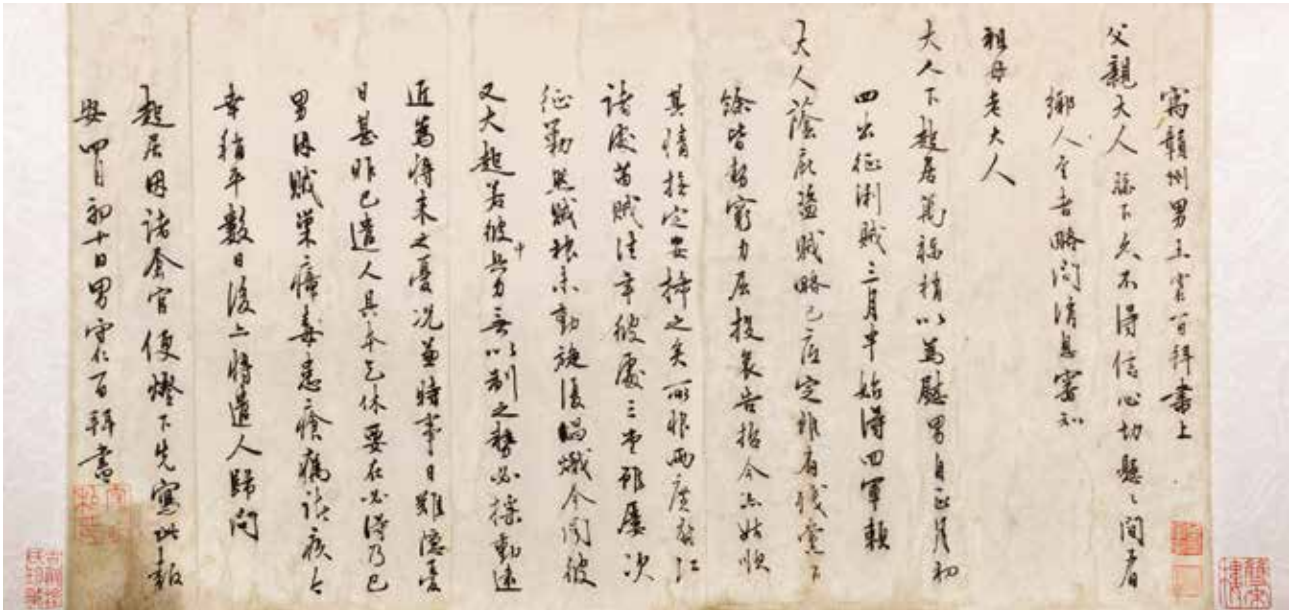 寓贛州男王守仁百拜書上
父親大人膝下久不得信心切懸懸間有
鄉人至者略問消息審知
祖母老大人
大人下起居萬福稍以為慰男自正月初
四出征浰賊三月半始得回軍賴
大人蔭庇盜賊略已底定雖有殘黨
餘皆勢窮力屈投哀告招今亦姑順
其情撫定安揷之矣所恨兩廣
諸處苗賊往年彼處三堂雖屢次
征勦然賊根未動旋復昌熾今聞彼
又大起若彼中兵力無以制之勢必搖動遠
近為將來之憂況兼時事日難隱憂
日甚昨已遣人具本乞休要在必得乃已
男因賊巢瘴毒患瘡癘諸疾今
幸稍平數日後亦將遣人歸問
起居因諸倉官便燈下先寫此報
安四月初十日男守仁百拜書